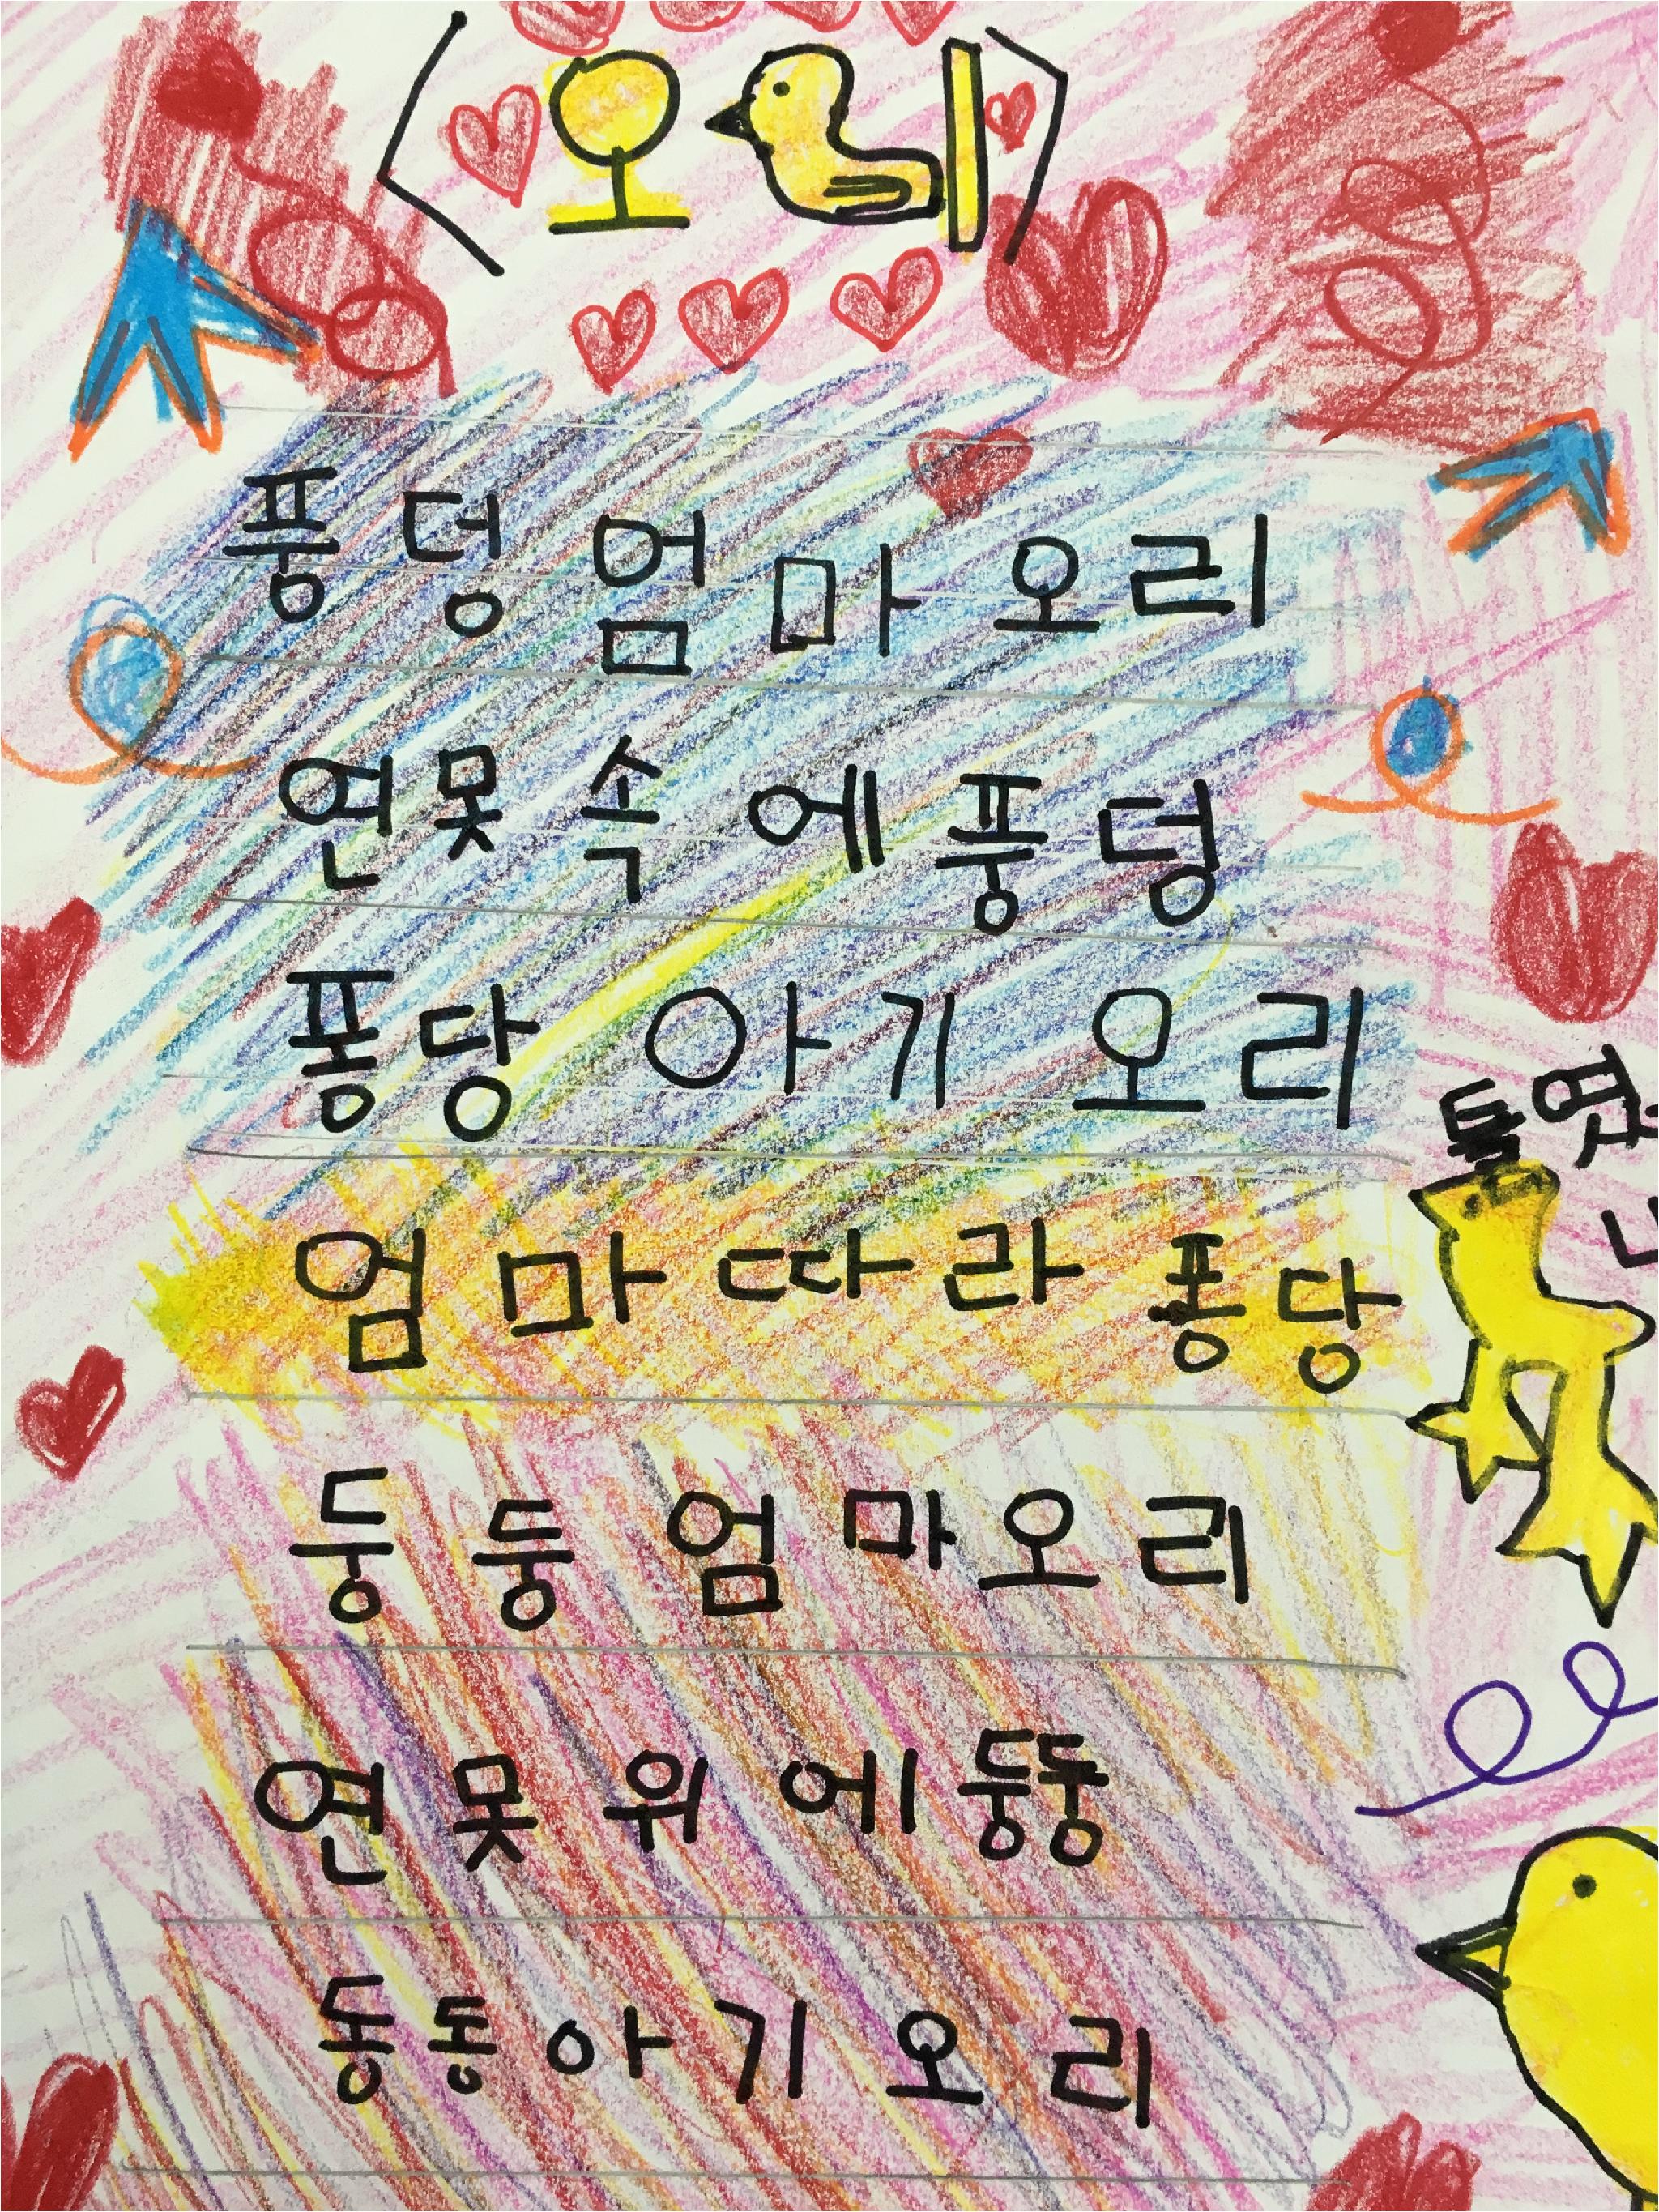 <오리>
풍덩 엄마 오리
연못 속에 풍덩
퐁당 아기 오리
엄마 따라 퐁당
둥 둥 엄마 오리
연못 위에 둥둥
동동 아기 오리